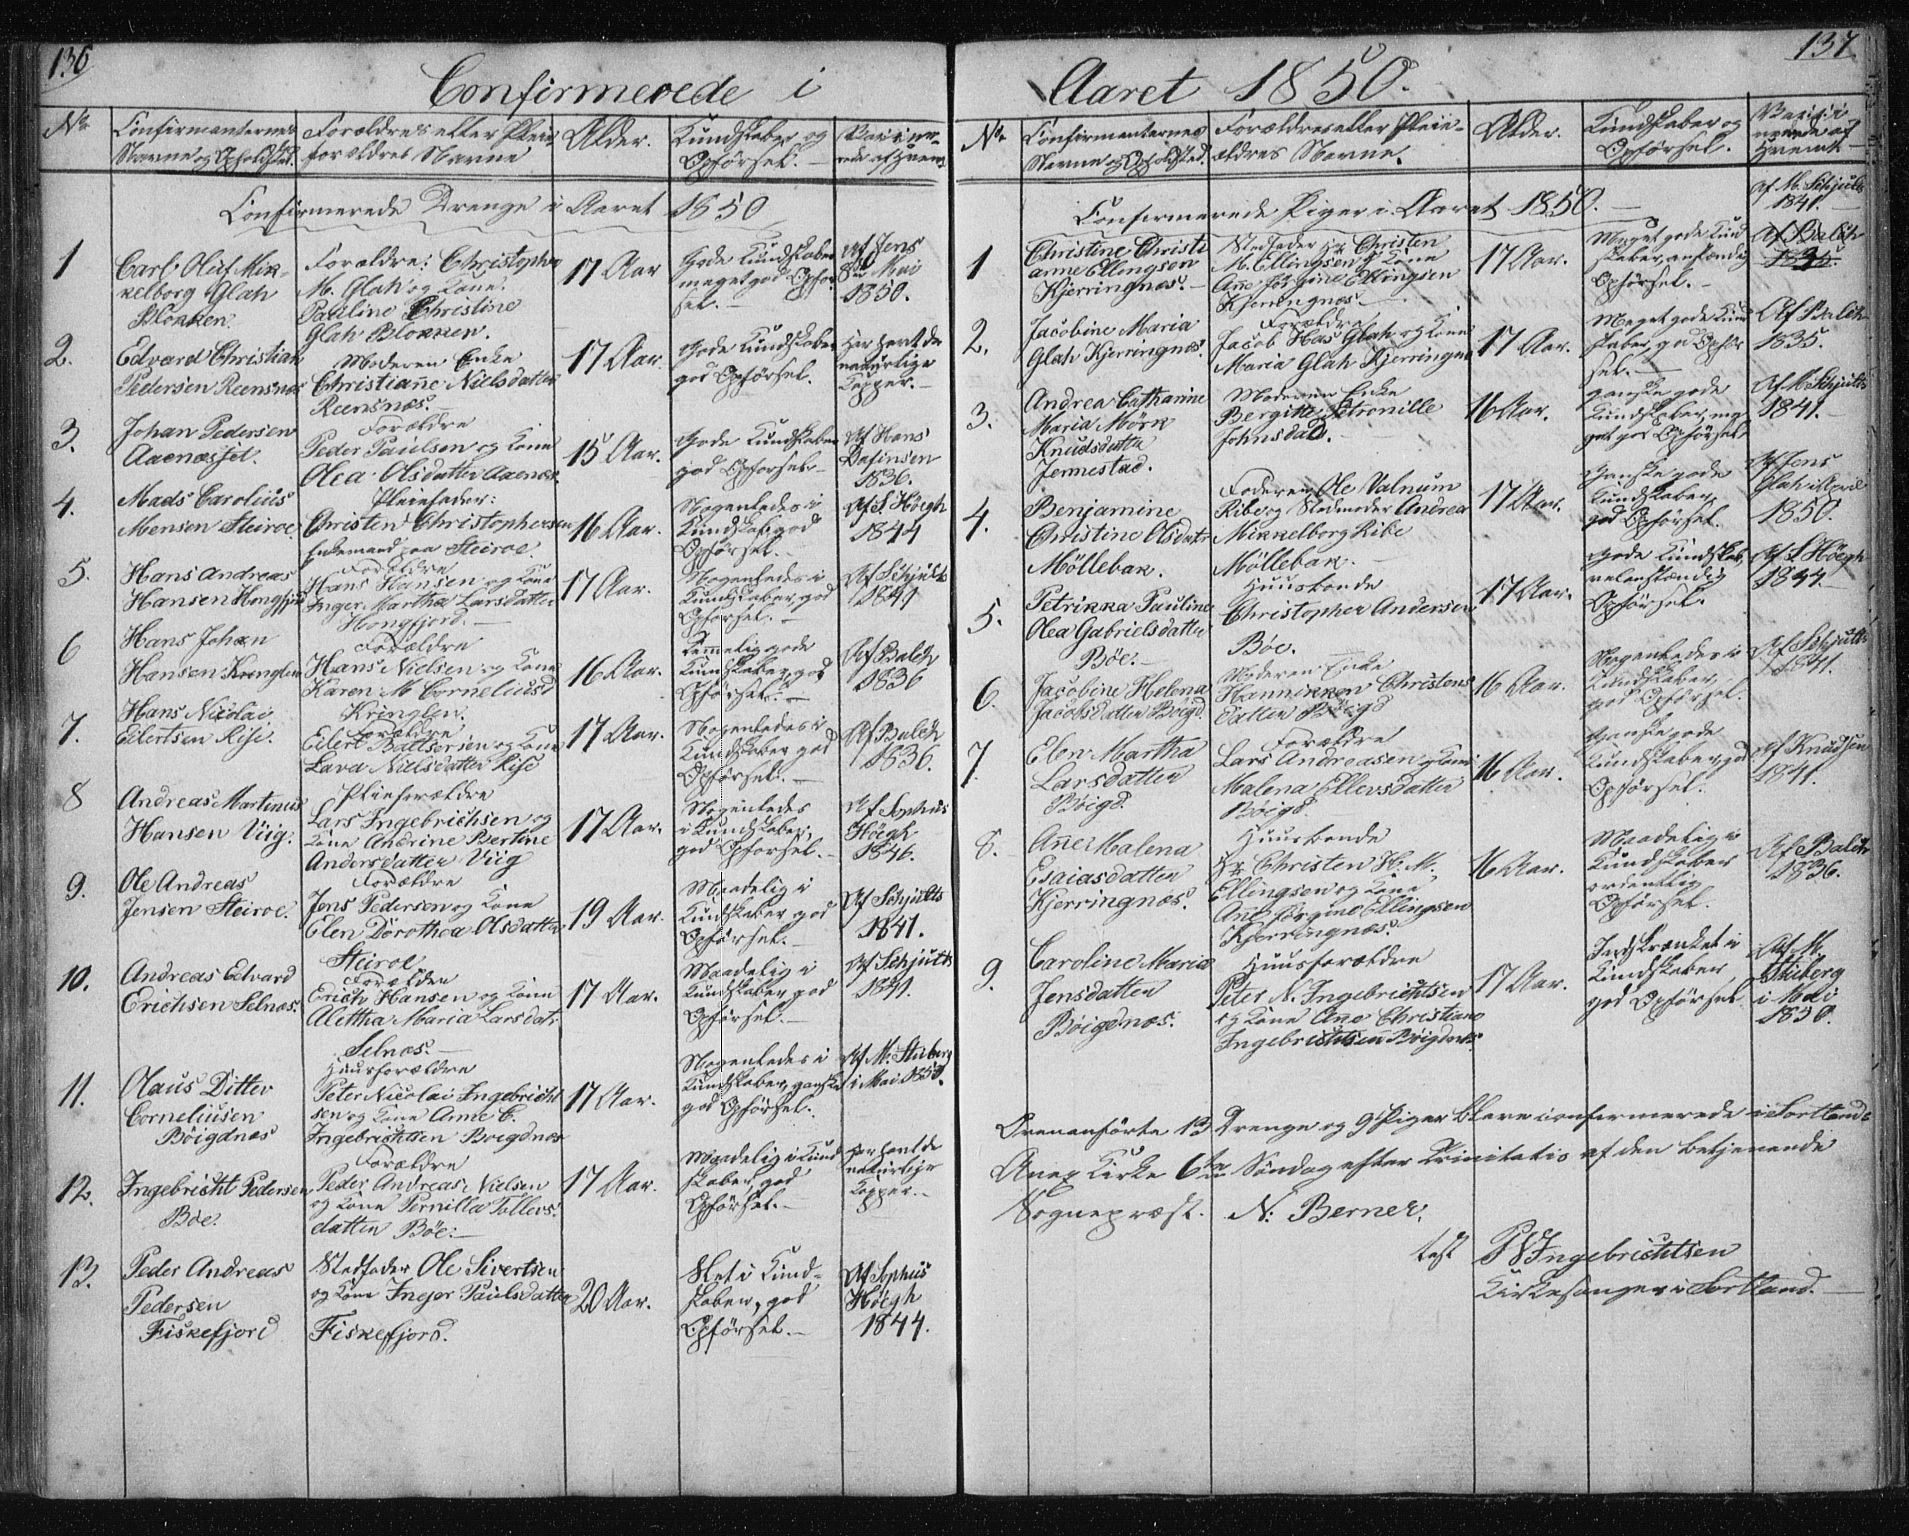 136
Confirmerede i
No
Confirmanternes
Navne og Opholdsted.
Forældres eller Pleie-
forældres Navne
Alder.
Kundskaber og
Opførsel.
Vaccine-
rede af hvem
Confirmerede Drenge i Aaret 1850
1
Carl Oluf Mik-
kelborg Glah
Blokken.
Forældre: Christopher
M. Glah og Kone
Pauline Christine
Glah Blokken.
17 Aar
Gode Kundskaber
meget god Opfør-
sel.
Af Jens
Mai
1850.
2.
Edvard Christian
Pedersen Reensnæs
Moderen Enke
Christiane Nielsdatter
Reensnæs.
17 Aar.
Gode Kundskaber
god Opførsel.
Har havt de
naturlige
Kopper.
3.
Johan Pedersen
Aaenæsset.
Forældre
Peder Paulsen og Kone
Olea Olsdatter Aaenæs.
15 Aar.
Gode Kundskaber
god Opførsel.
Af Hans
1836.
4.
Mads Carolius
Mensen Steiroe.
Pleiefader:
Christen Christophersen
Enkemand paa Steiroe.
16 Aar.
Nogenledes i
Kundskab, god
Opførsel.
Af S. Höegh
1844
5.
Hans Andreas
Hansen Hongfjord
Forældre
Hans Hansen og Kone
Inger Martha Larsdatter
Hongfjord.
17 Aar.
Nogenledes i
Kundskaber, god
Opførsel.
Af Schjults
1841
6
Hans Johan
Hansen Kringlen
Forældre
Hans Nielsen og Kone
Karen M Corneliusd
Kringlen.
16 Aar.
Temmelig gode
Kundskaber, god
Opførsel.
Af Balch
1836
7.
Hans Nicolai
Eilertsen Rise.
Forældre
Eilert Baltsersen og Kone
Lava Nielsdatter Rise
17 Aar.
Nogenledes i
Kundskaber god
Opførsel.
Af Balch
1836.
8
Andreas Martinus
Hansen Viig.
Pleieforældre
Lars Ingebrichsen og
Kone Andrine Bertine
Andersdatter Viig
17 Aar.
Nogenledes
i Kundskaber,
god Opførsel.
Af Sophus
Höegh
1846.
9.
Ole Andreas
Jensen Steiroe.
Forældre
Jens Pedersen og Kone
Elen Dorothea Olsdatter
Steiroe
19 Aar.
Maadelig i
Kundskaber god
Opførsel.
Af Schjults
1841.
10.
Andreas Edvard
Erichsen Selnæs.
Forældre
Erich Hansen og Kone
Alettha Maria Larsdatr
Selnæs.
17 Aar.
Maadelig i
Kundskaber god
Opførsel.
Af Schjults
1841.
11.
Olaus Ditlev
Corneliusen
Böigdnæs
Huusforældre
Peter Nicolai Ingebricht
sen og Kone Anne C.
Ingebrichtsen Böigdnæs
17 Aar.
Nogenledes i
Kundskaber, ganske
god Opførsel.
Af M. Stuberg
i Mai 1850.
12.
Ingebricht Pedersen
Böe.
Forældre
Peder Andreas Nielsen
og Kone Pernilla Tollevs-
datter Böe.
17 Aar.
Maadelig i Kund
skaber, god
Opførsel.
Har havt de
naturlige
Kopper.
13.
Peder Andreas
Pedersen
Fiskefjord
Stedfader Ole Sivertsen
og Kone Inger Paulsdatter
Fiskefjord.
20 Aar.
Slet i Kund-
skaber, god
Opførsel.
Af Sophus
Höegh
1844.
137
Aaret 1850.
No
Confirmanternes
Navne og Opholdsted.
Forældres eller Pleie-
ældres Navne.
Alder.
Kundskaber og
Opførsel.
Vacci-
nerede af
Hvem
Confirmerede Piger i Aaret 1850.
Af M. Schjults
1841.
1
Christine Christi
anne Ellingsen
Kjerringnæs.
Stedfader Hr Christen
M. Ellingsen og Kone
Ane Jørgine Ellingsen
Kjerringnæs.
17 Aar.
Meget gode Kund
skaber, anstændig
Opførsel.
Af Balch
2.
Jacobine Maria
Glah Kjerringnæs.
Forældre
Jacob Glah og Kone
Maria Glah Kjerringnæs
17 Aar.
Meget gode Kund
skaber, god Opfør
sel.
Af Balch
1835.
3.
Andrea Catharine
Maria Mörk
Knudsdatter
Jennestad.
Moderen Enke
Bergitte Petronille
Johnsdatr.
16 Aar.
ganske gode
Kundskaber, me
get god Opførsel.
Af M Schjults
1841.
4.
Benjamine
Christine Olsdatr
Möllebak.
Foderen Ole Valnum
Ribe og Stedmoder Andrea
Mikkelborg Ribe
Möllebak.
17 Aar.
Ganske gode
Kundskaber,
god Opførsel.
Af Jens
Glah i April
1850.
5.
Petrikka Pauline
Olea Gabrielsdatter
Böe.
Huusbonde
Christopher Andersen
Böe.
17 Aar.
Gode Kundskab,
velanstændig
Opførsel.
Af S Höegh
1844.
6.
Jacobine Helena
Jacobsdatter Böigd.
Moderen Enke
Hannikken Christens
datter Böigd
16 Aar.
Nogenledes i
Kundskaber,
god Opførsel.
Af Schjults
1841.
7.
Elen Martha
Larsdatter
Böigd.
Forældre
Lars Andreasen og Kone
Malena Ellevsdatter
Böigd.
16 Aar.
Ganske gode
Kundskaber, god
Opførsel.
Af Knudsen
1841.
8.
Ane Malena
Esaiasdatter
Kjerringnæs.
Huusbonde
Hr Christen H. M.
Ellingsen og Kone
Ane Jörgine Ellingsen
Kjerringnæs.
16 Aar.
Maadelig i
Kundskaber
ordentlig
Opførsel.
Af Balch
1836.
9.
Caroline Maria
Jensdatter
Böigdnæs.
Huusforældre
Peter N. Ingebrichtsen
og Kone Ane Christiane
Ingebrichtsen Böigdnæs.
17 Aar.
Indskrænket i
Kundskaber
god Opførsel
Af M.
Stuberg
i Mai
1850.
Ovenanförte 13 Drenge og 9 Piger bleve confirmerede i Sortlands
Anex Kirke 6te Søndag efter Trinitatis af den betjenende
Sognepræst. N. Berner.
test P N Ingebrichtsen
Kirkesanger i Sortland.